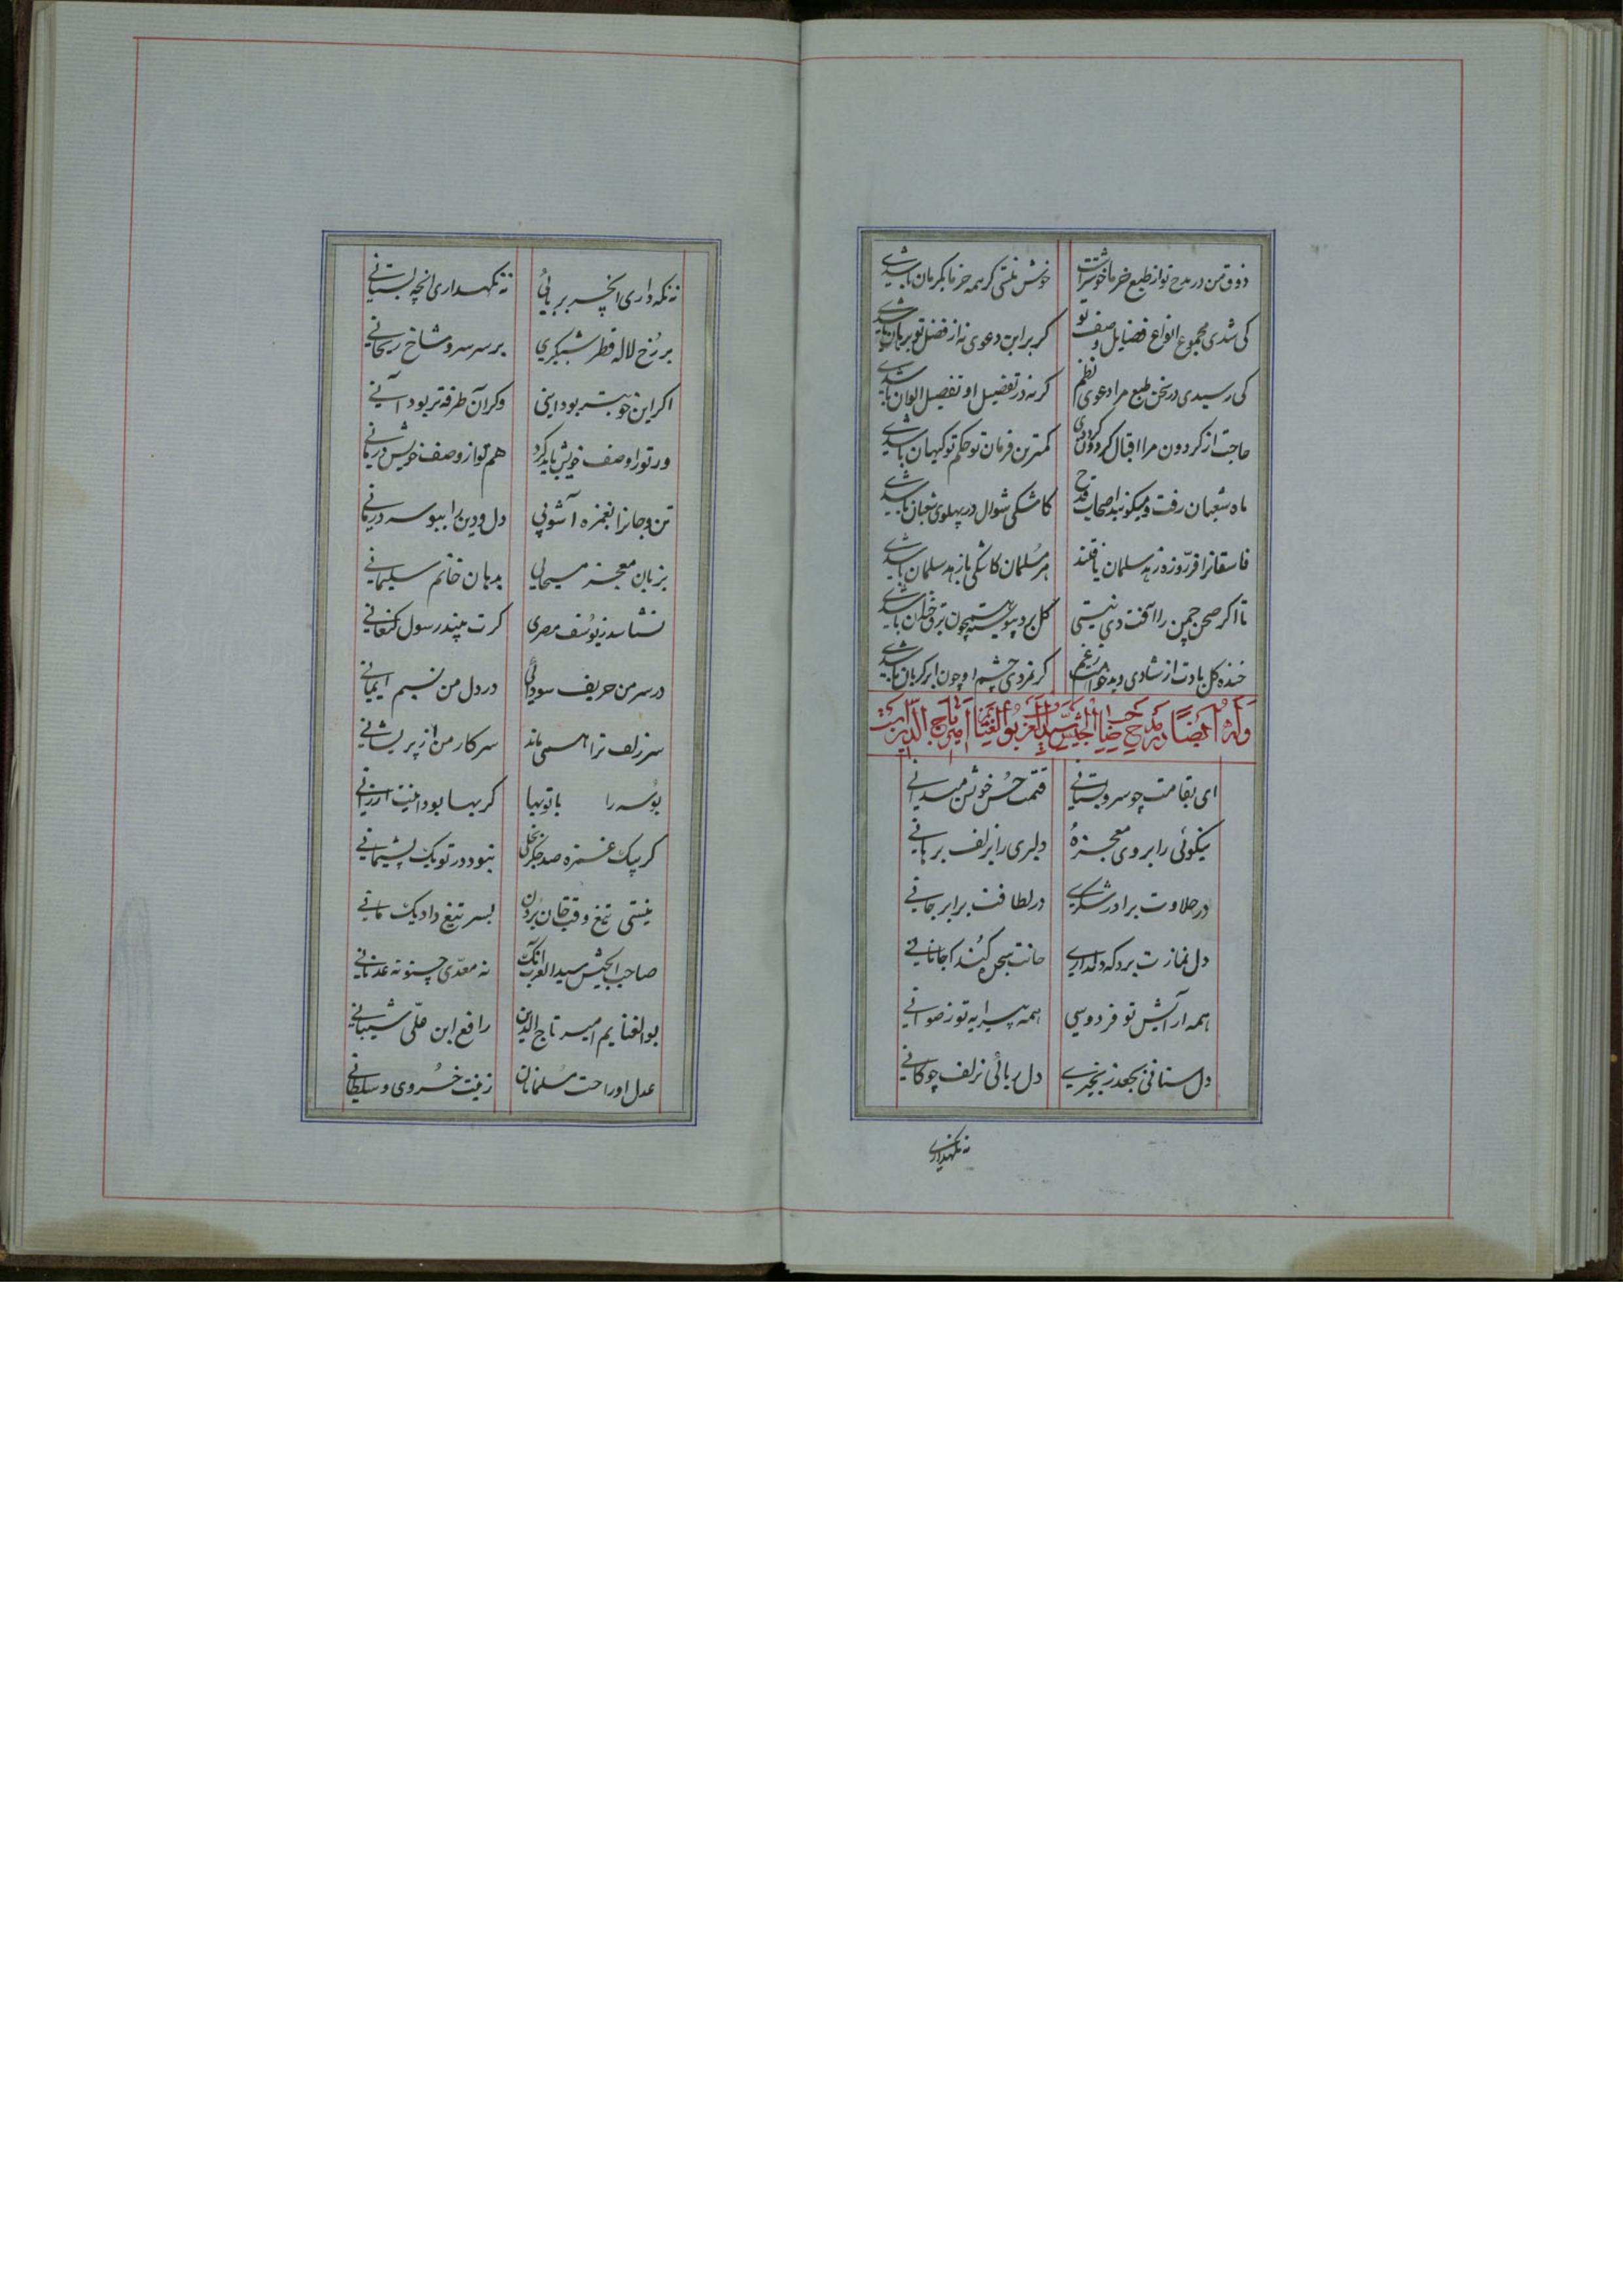 ذوق من در مدح تو از طبع خرما خوشتراست خوش نیستی کر همه خرما بکرمان باشدی
کی شدی مجموع انواع فضایل وصف تو کر برین دعوی نه از فضل تو برهان باشدی
کی رسیدی در سخن طبع مرا دعوی نظم کرنه در تفضیل او تفصیل الوان باشدی
حاجت از کردون مرا اقبال تو کردی کمترین فرمان تو حکم تو کیهان باشدی
ماه شعبان رفت و میکویند اصحاب قدح کاشکی شوال در پهلوی شعبان باشدی
فاسقانرا فر روزه زهد سلمان یافتند هر مسلمان کاشکی با زهد سلمان باشدی
تا اکر صحن چمن را آفت دی نیستی کل برو پیوسته همچون برق خندان باشدی
خنده کل بادت از شادی و بدخواهت زغم کر نمردی چشم او چون ابر کریان باشدی
وله ایضا در مدح صاحب الجیش سید العرب بوالغنایم امیر تاج الدین راست
ای بقامت چو سرو بستانی قیمت حسن خوش میدانی
نیکوئی را بروی معجزهٔ دلبری را بزلف برهانی
در حلاوت برادر شکری در لطافت برابر جانی
دل نمازت برد که دلداری جانت سجده کند که جانانی
همه آرایش تو فردوسی همه پیرایه تو رضوانی
دل ستانی بجعد زنجیری دل ربائی بزلف چوکانی
نه نکهداری
نه نکه داری انچه بربائی نه نکهداری انچه بستانی
بر رخ لاله قطر شبکیری بر سر سرو شاخ ریحانی
اکر این خوبتر بود اینی وکر آن طرفه تر بود آنی
ور تو را وصف خویش باید کرد هم تو از وصف خویش درمانی
تن و جانرا بغمزه آشوبی دل و دین را ببوسه درمانی
بزبان معجز مسیحایی بدهان خاتم سلیمانی
نشناسد ز یوسف مصری کرت بیند رسول کنعانی
در سر من حریف سودائی در دل من نسیم ایمانی
سر زلف ترا همی ماند سر کار من از پریشانی
بوسه را با تو بها کر بها بود اینت ارزانی
کر بیک غمزه صد جکر بخلی نبود در تو یک پشیمانی
نیستی تیغ وقت جان بردن بسر تیغ داد یک مانی
صاحب الجیش سید العرب انک نه معدی چنو نه عدنانی
بوالغنایم امیر تاج الدین رافع ابن علی شیبانی
عدل او راحت مسلمانان زینت خسروی و سلطانی